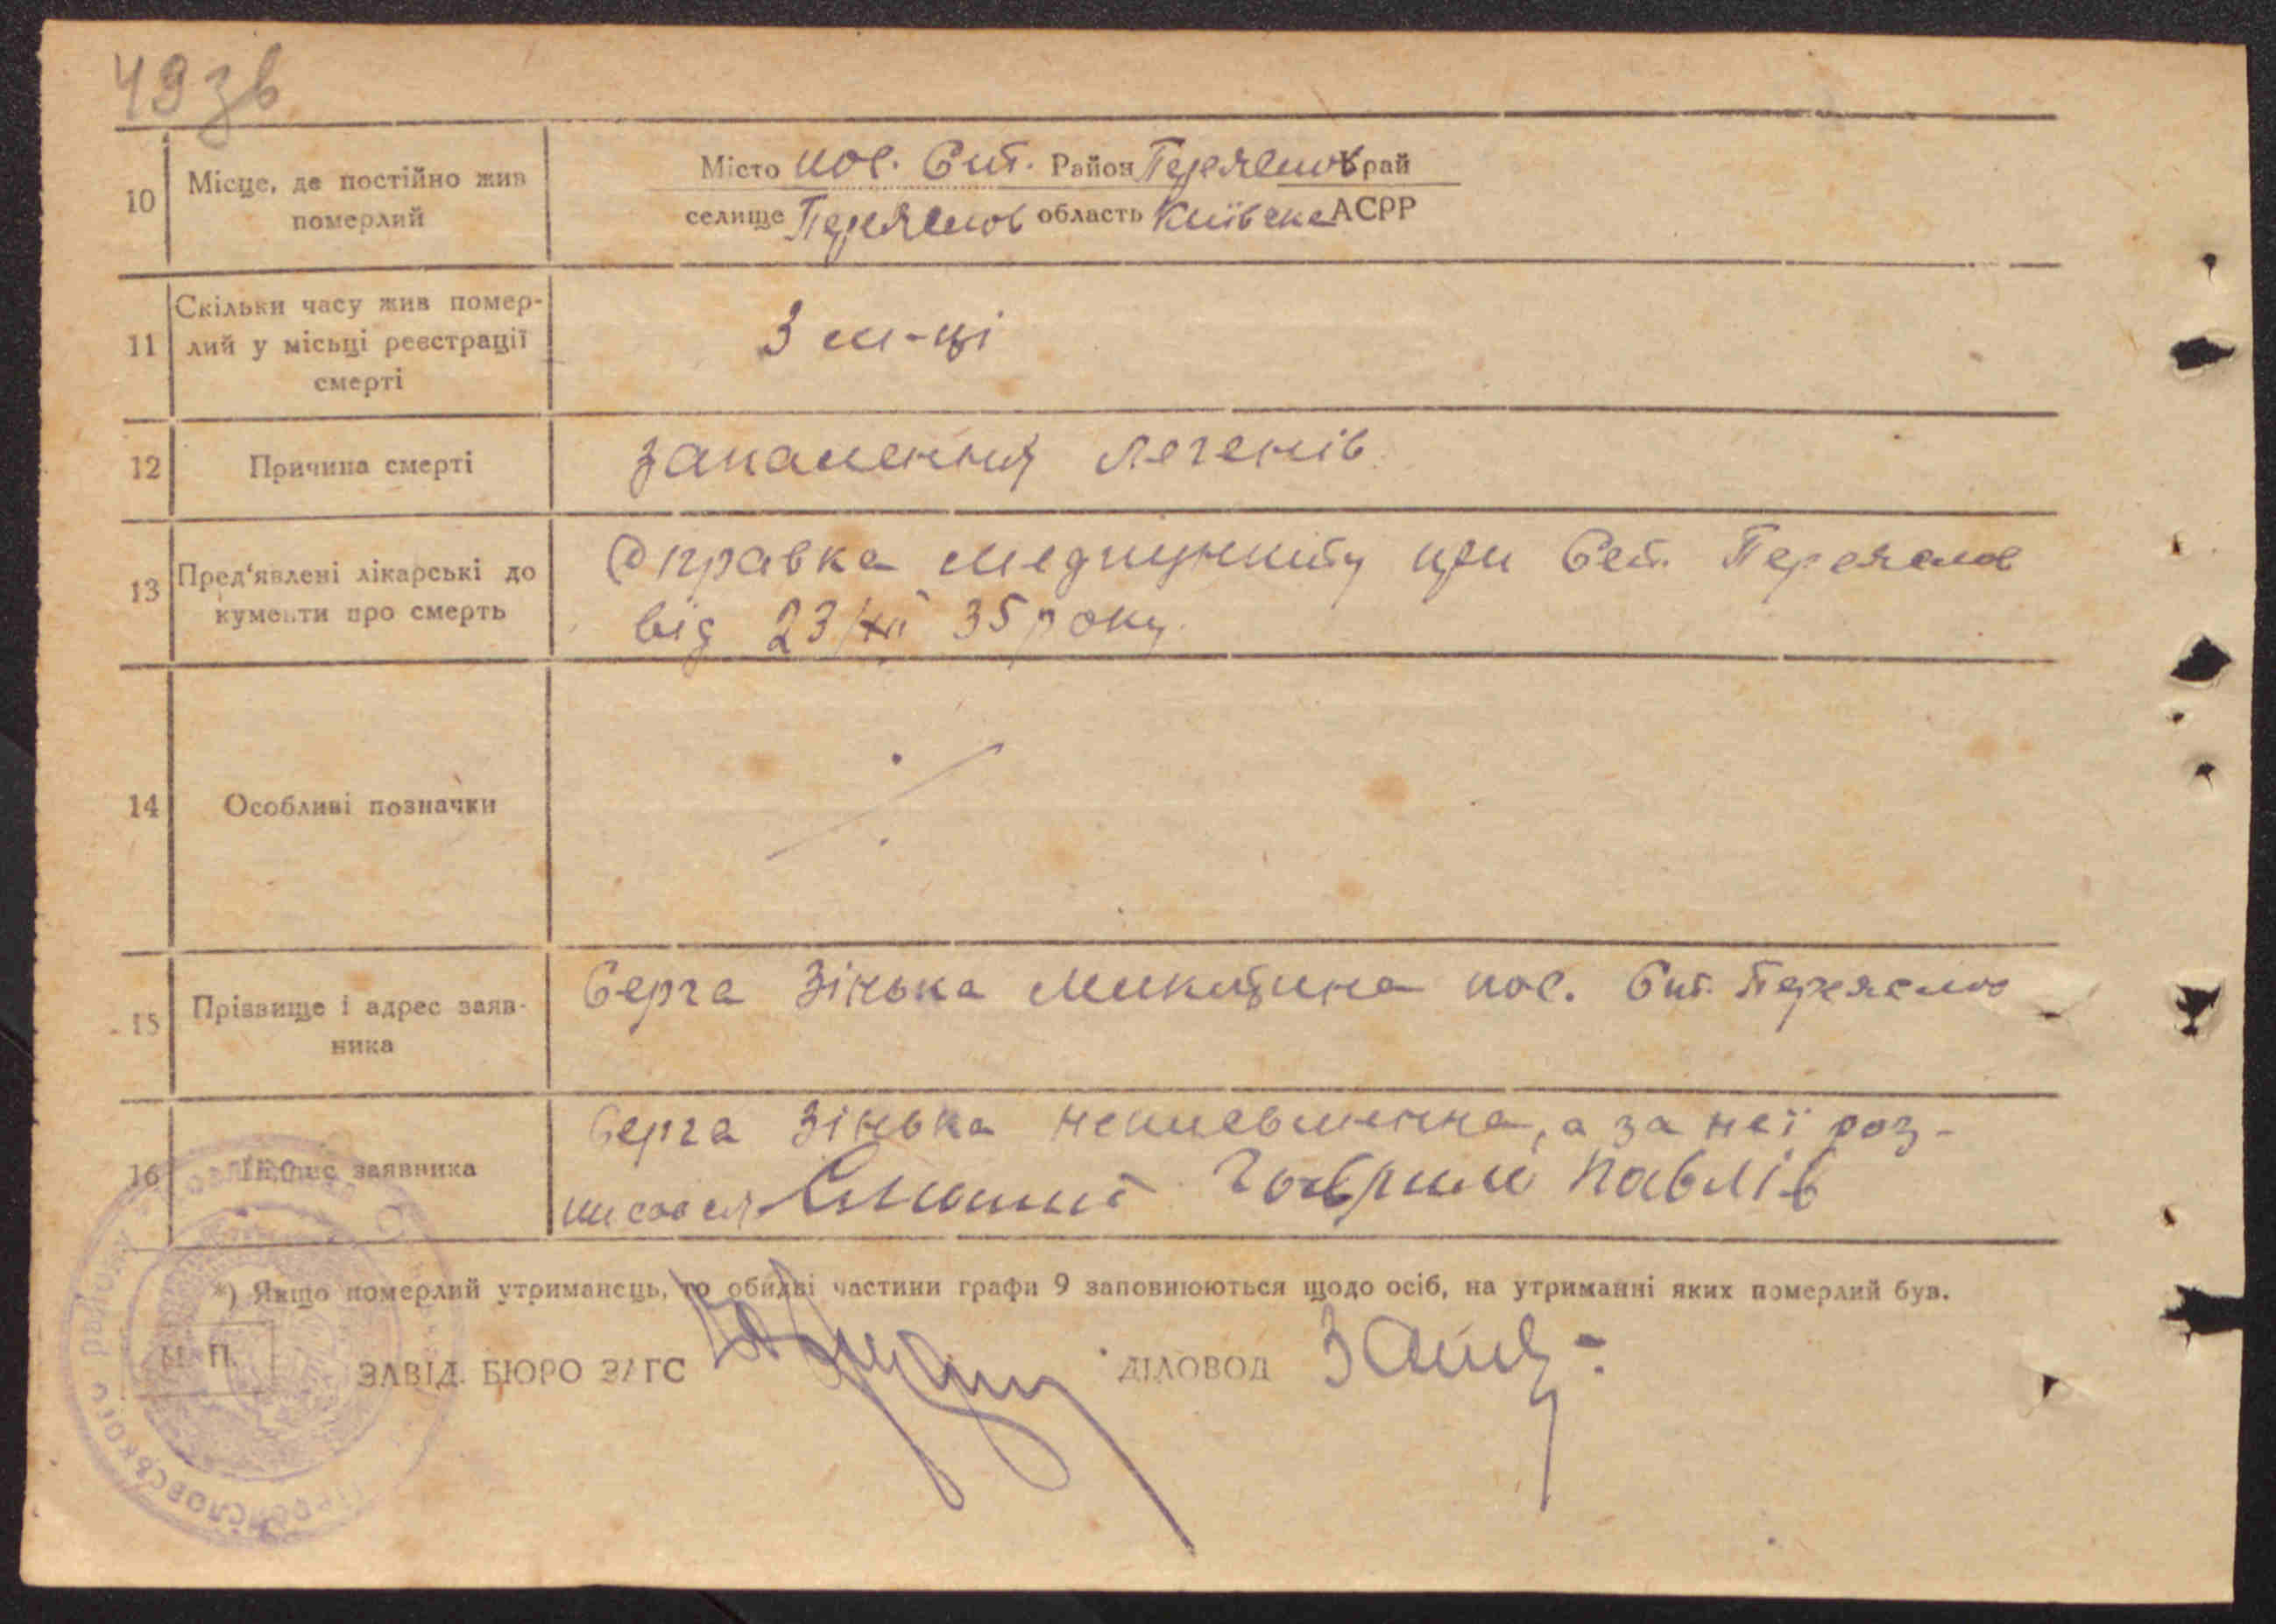 49зв
10 Місце, де постійно жив померлий
Місто пос. Сит. Район Переяслов Край
селище Переяслов область Київська АСРР
11 Скільки часу жив помер-
лий у місьці реєстрації
смерті
3 м-ці
12 Причина смерті
запалення легенів.
13 Пред'явлені лікарські до
кументи про смерть
Справка медпункту при Сит. Переяслов
від 23/XII 35 року.
14 Особливі позначки
15 Прізвище і адрес заяв-
ника
Серга Зінька Микитина пос. Сит. Переяслов
16 Підпис заявника
Серга Зінька неписьменна, а за неї роз-
писався Гаврило Павлів
*) Якщо померлий утриманець, то обидві частини графи 9 заповнюються щодо осіб, на утриманні яких померлий був.
М. П.
ЗАВІД. БЮРО ЗАГС
ДІЛОВОД